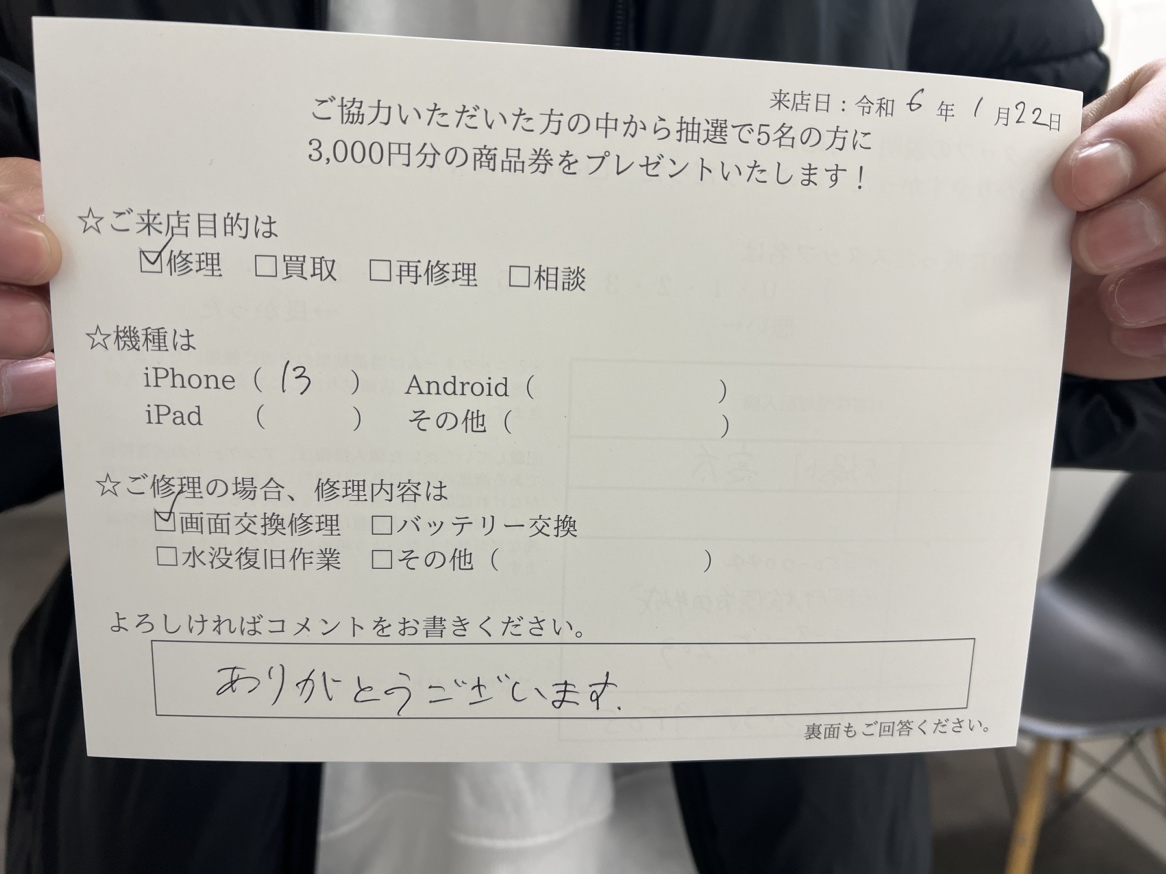 来店日：令和 6 年 1 月 22日
ご協力いただいた方の中から抽選で5名の方に
3,000円分の商品券をプレゼントいたします！
☆ご来店目的は
☑修理 □買取 □再修理 □相談
☆機種は
iPhone（ 13 ） Android（ ）
iPad （ ） その他（ ）
☆ご修理の場合、修理内容は
☑画面交換修理 □バッテリー交換
□水没復旧作業 □その他（ ）
よろしければコメントをお書きください。
ありがとうございます.
裏面もご回答ください。